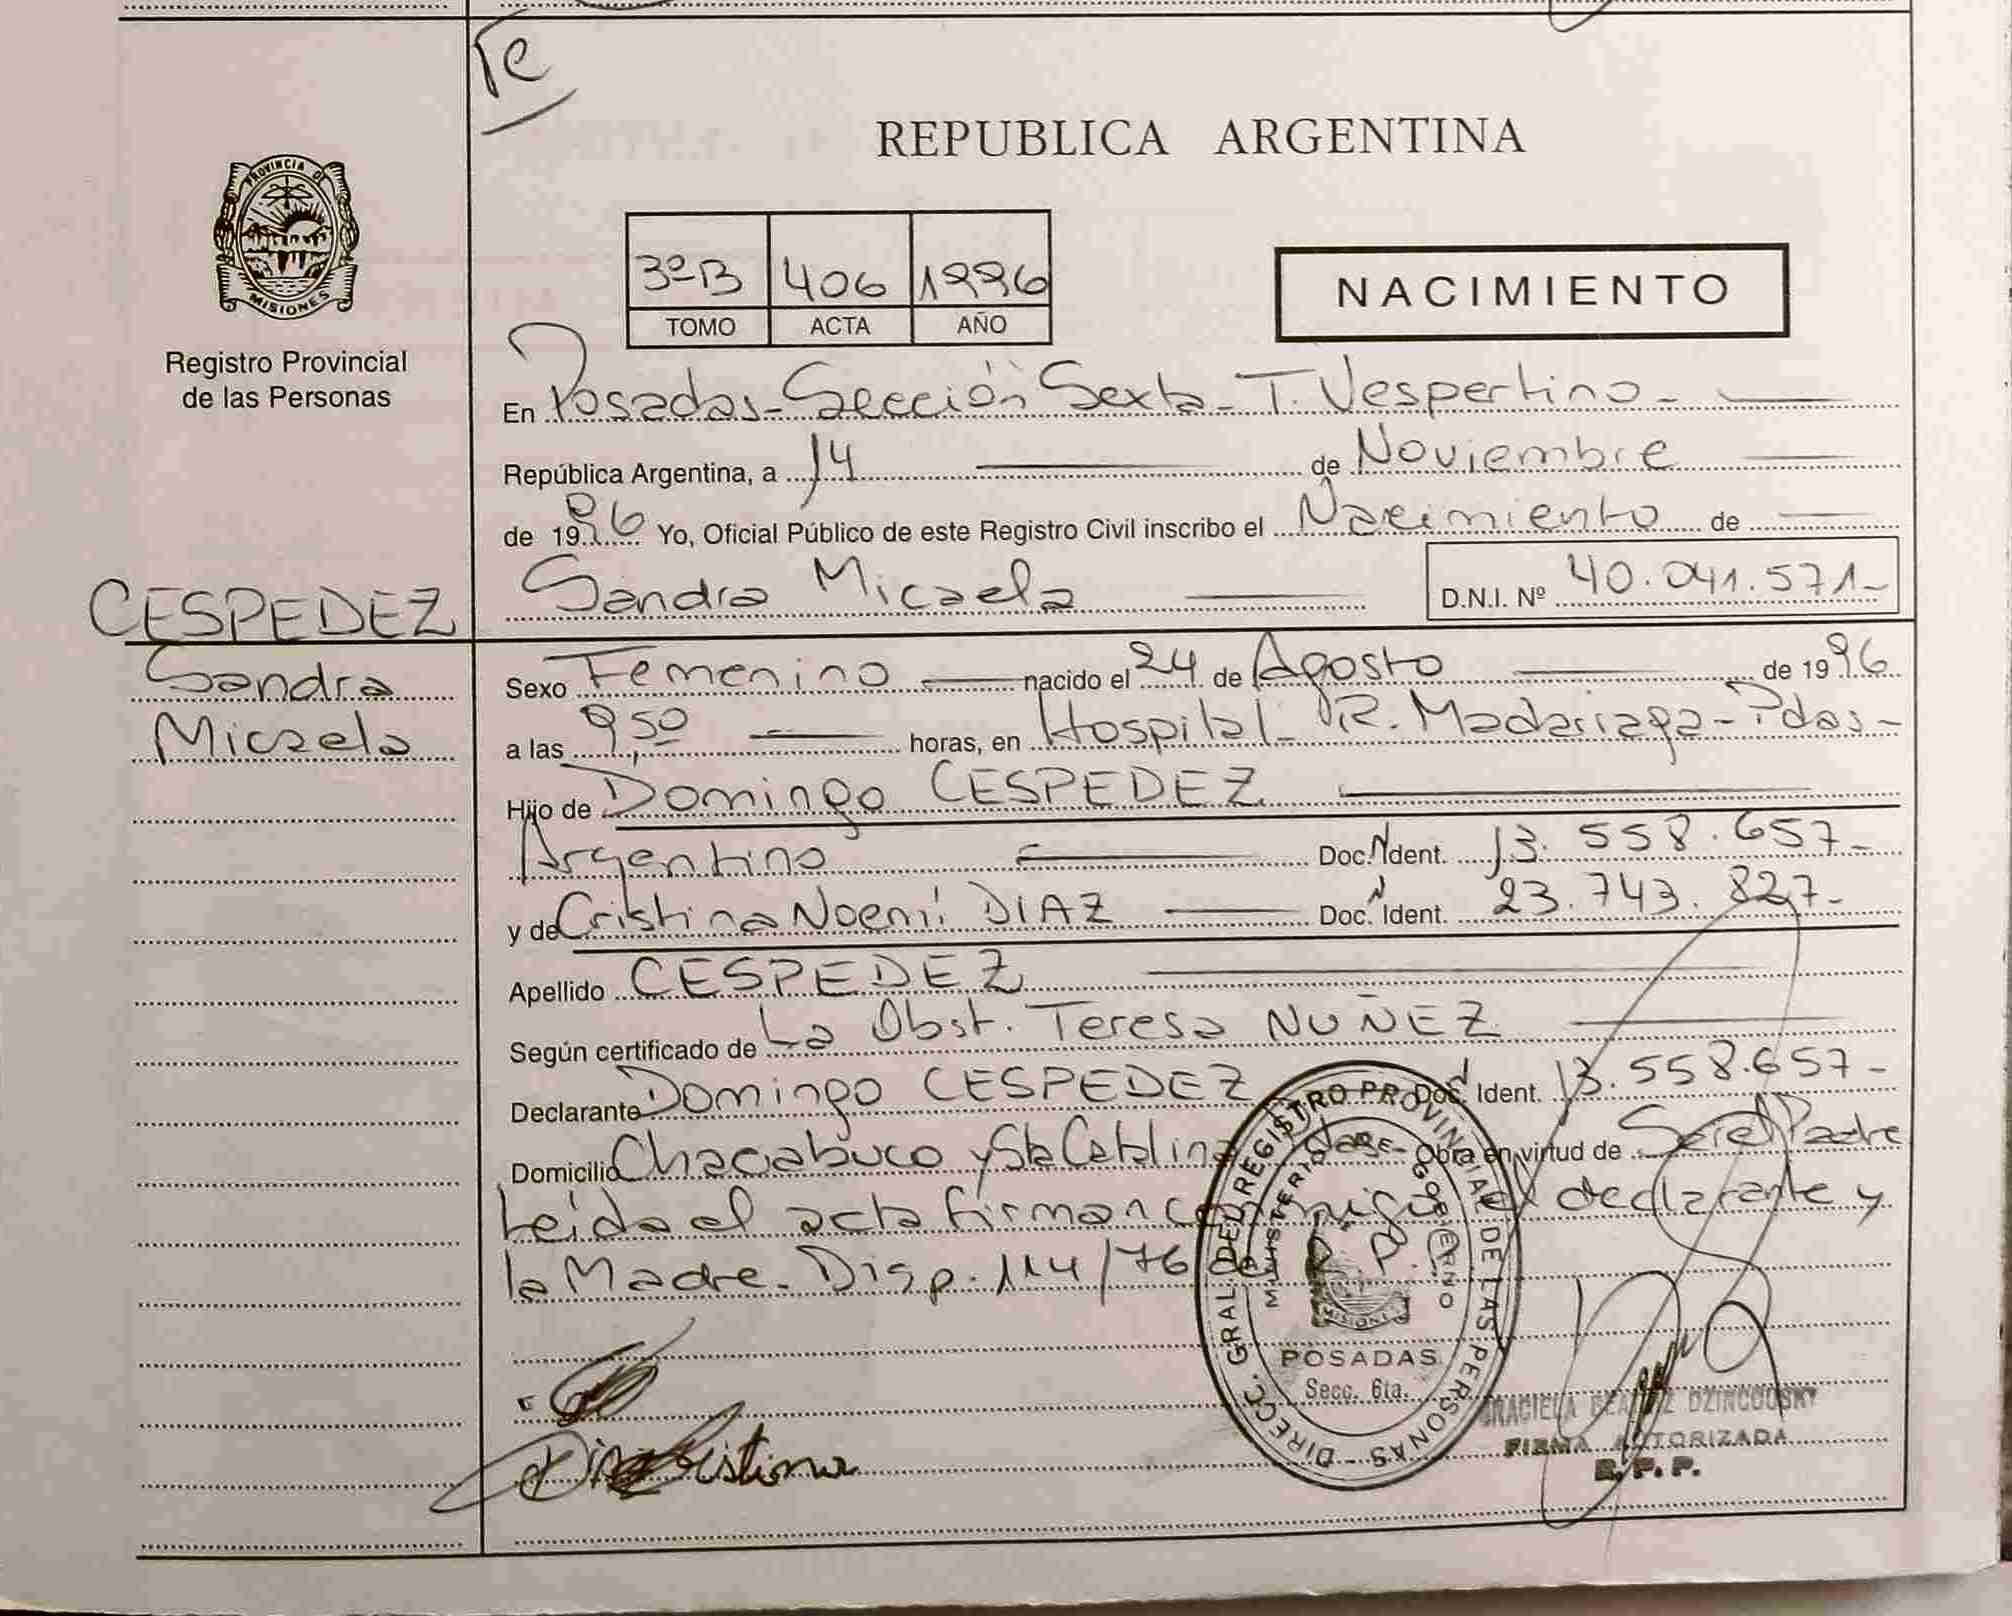 Te
REPUBLICA ARGENTINA
PROVINCIA DE
MISIONES
Registro Provincial
de las Personas
3º B 406 1996
TOMO ACTA AÑO
NACIMIENTO
En Posadas-Sección Sexta-T. Vespertino-
República Argentina, a 14 de Noviembre
de 1996 Yo, Oficial Público de este Registro Civil inscribo el Nacimiento de
CESPEDEZ Sandra Micaela D.N.I. Nº 40.041.571-
Sandra
Micaela
Sexo Femenino nacido el 24 de Agosto de 1996
a las 9,50 horas, en Hospital R. Madariaga-Pdas-
Hijo de Domingo CESPEDEZ
Argentino Doc. N Ident. 13.558.657-
y de Cristina Noemí DIAZ Doc. N Ident. 23.743.827-
Apellido CESPEDEZ
Según certificado de La Obst. Teresa NUÑEZ
Declarante Domingo CESPEDEZ Doc. Ident. 13.558.657-
Domicilio Chacabuco y Sta Catalina Obra en virtud de Ser el Padre
Leida el acta firman conmigo el declarante y
la Madre. Disp. 114/76 del R.P.P.
DIRECC. GRAL. DEL REGISTRO PROVINCIAL DE LAS PERSONAS
MINISTERIO DE GOBIERNO
MISIONES
POSADAS
Secc. 6ta.
Cristina
GRACIELA BEATRIZ DZINCOUSKY
FIRMA AUTORIZADA
R. P. P.